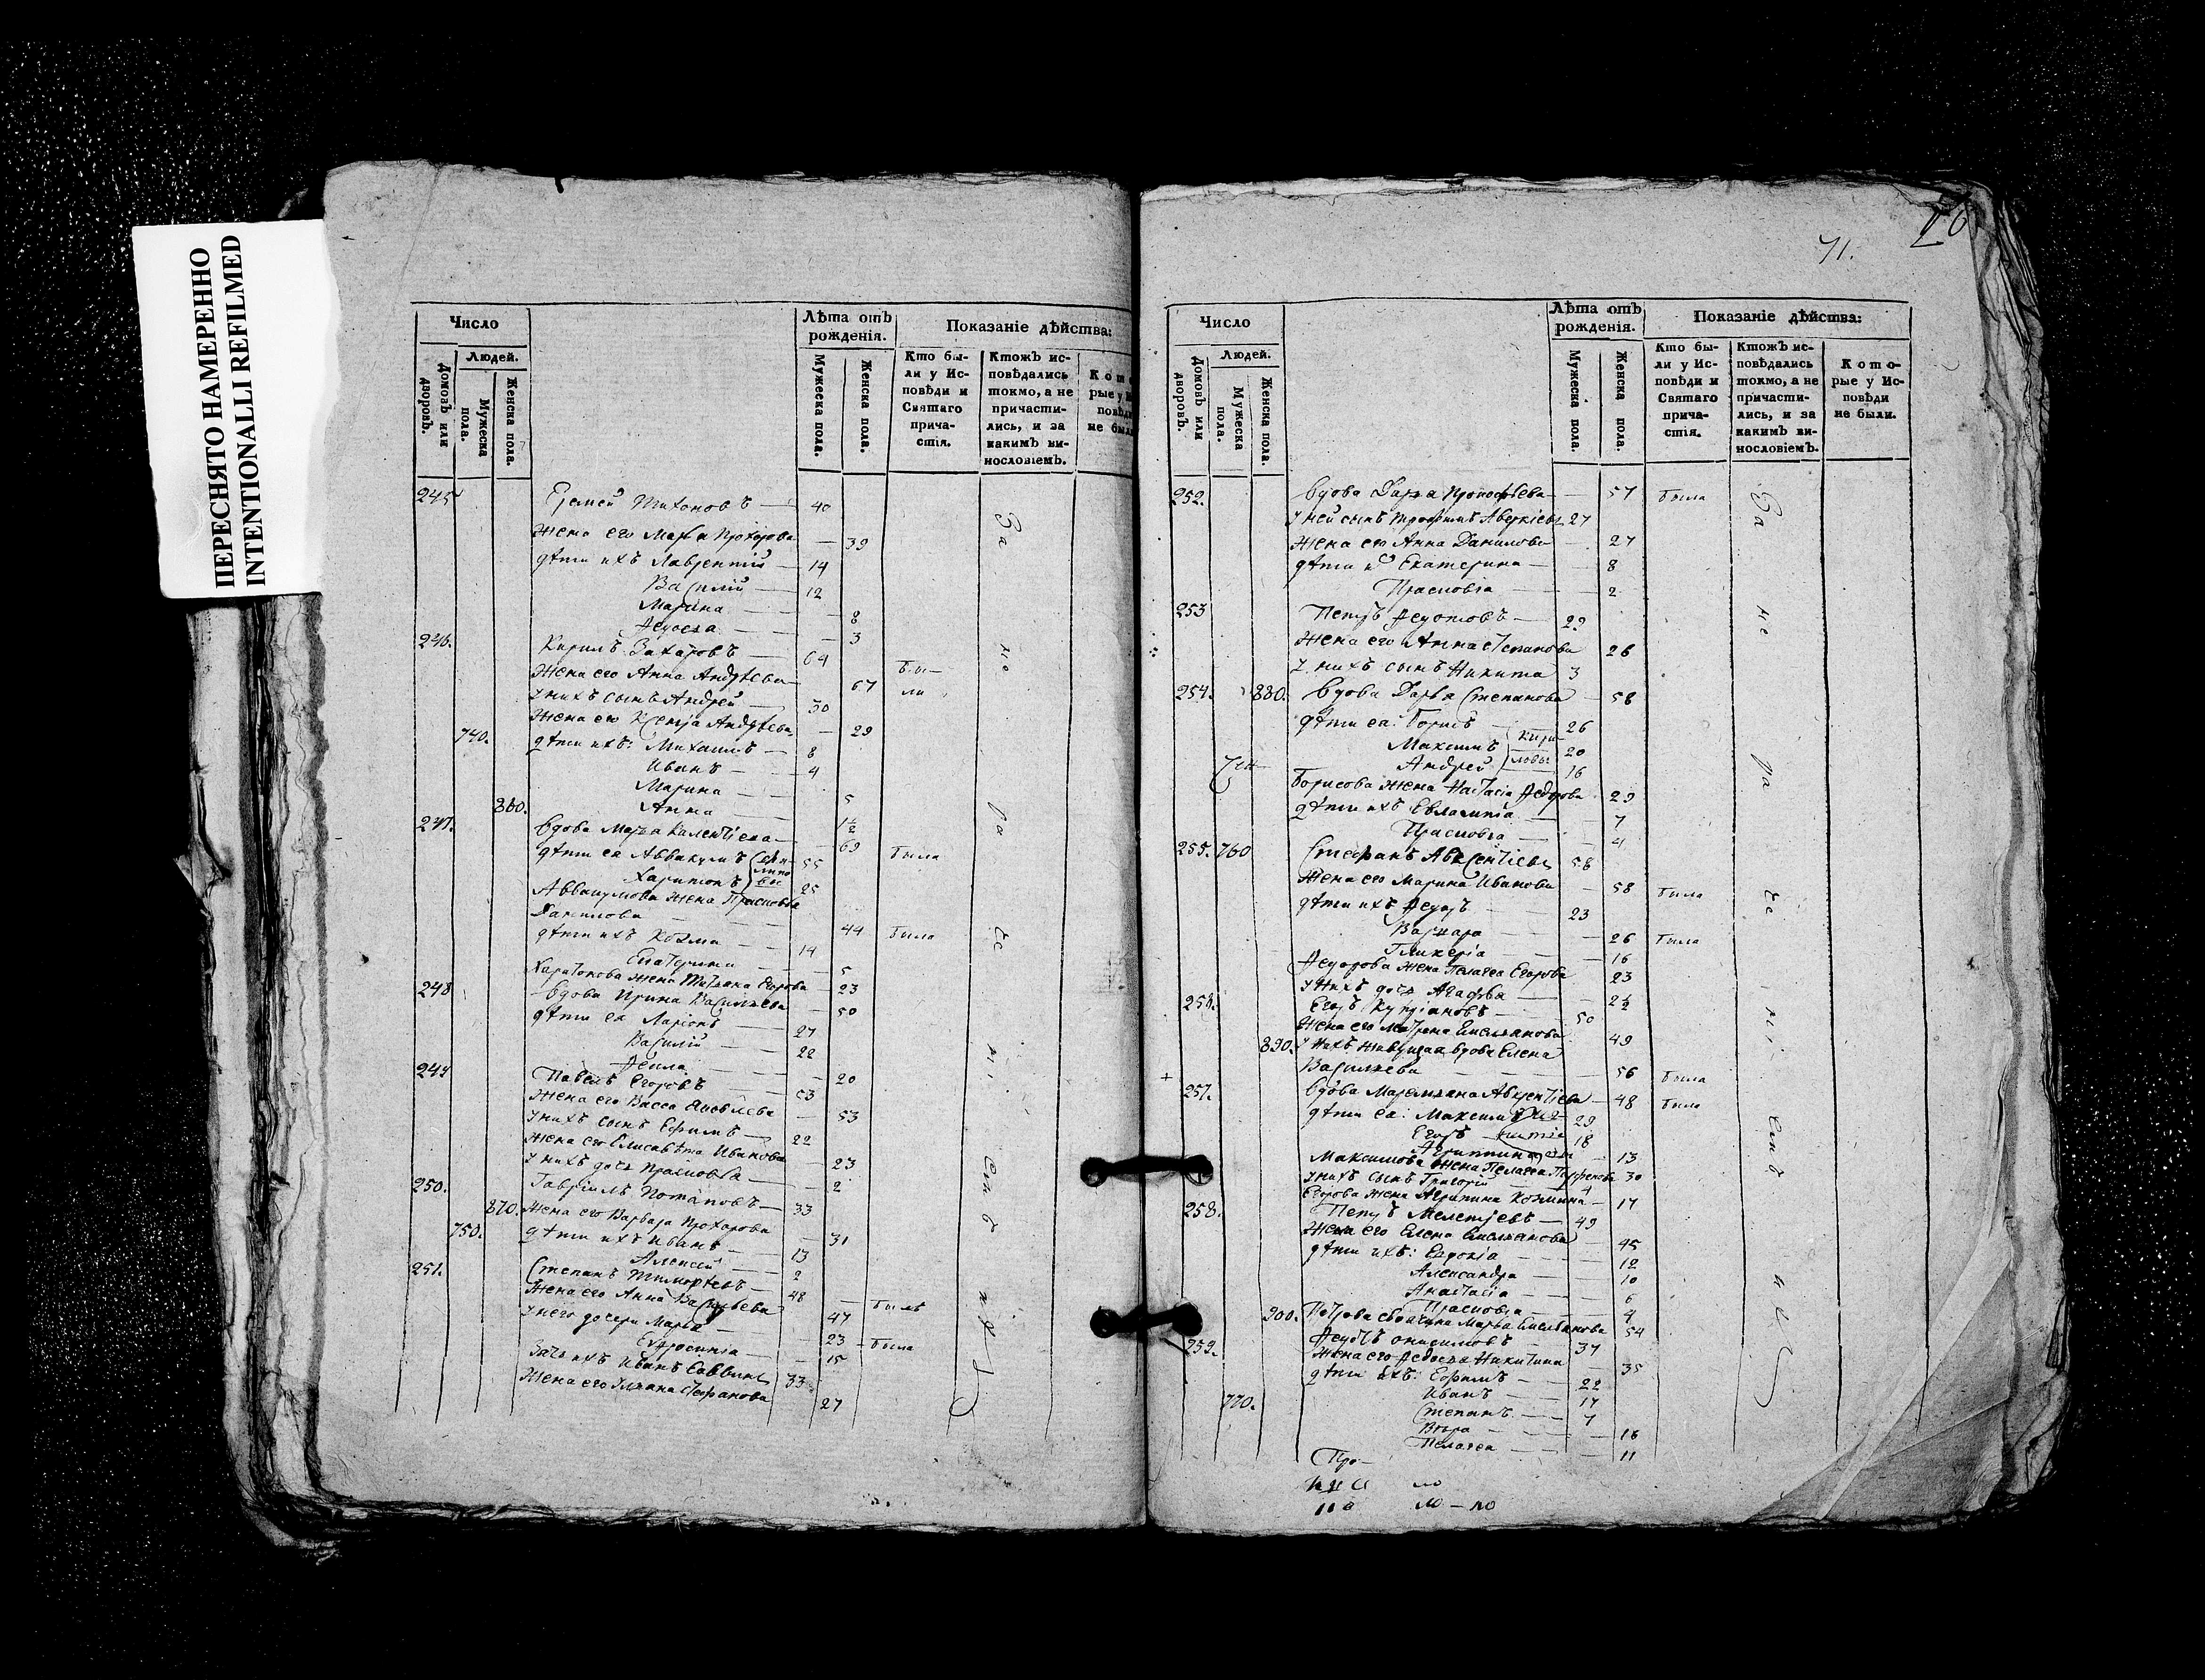 ПЕРЕСНЯТО НАМЕРЕННО
INTENTIONALLI REFILMED
Число
Лѣта отъ рожденія.
Показаніе дѣйства:
Людей.
Домовъ или дворовъ.
Мужеска пола.
Женска пола.
Мужеска пола.
Женска пола.
Кто были у Исповѣди и Святаго причастія.
Ктожъ исповѣдались токмо, а не причастились, и за какимъ винословіемъ.
245 Еремей Тихоновъ — 40
Жена его Марѳа Прохорова — 39
дѣти ихъ Лаврентій — 14
Василій — 12
Марина — 8
Ѳедосья — 3
246. Кирилъ Захаровъ — 64
Жена его Анна Андрѣева — 67 бы-
у нихъ сынъ Андрей — 30 ли
Жена его Ксенія Андрѣева — 29
740. дѣти ихъ: Михаилъ — 8
Иванъ — 4
Марина — 5
860. Анна — 1½
247. Вдова Марья — 69 была
дѣти ея Аввакумъ 55
Харитонъ 25
Аввакумова жена Прасковья
Данилова — 44 была
дѣти ихъ Козма — 14
Екатерина — 5
Харитонова жена Татьяна Егорова — 23
248 Вдова Ирина Васильева — 50
дѣти ея Ларіонъ — 27
Василій — 22
Ѳекла — 20
249 Павелъ Егоровъ — 53
Жена его Васса Яковлева — 53
у нихъ сынъ Ефимъ — 22
Жена его Елисавѣта Иванова — 23
у нихъ дочь Прасковья — 2
250. Гавріилъ Потаповъ — 33
870. Жена его Варвара Прохорова — 31
750. дѣти ихъ Иванъ — 13
Алексѣй — 2
251. Степанъ Тимоѳѣевъ — 48
Жена его Анна Васильева — 47 былъ
у него дочери Марья — 23 была
Евфросинія — 15
Зять ихъ Иванъ Саввинъ 33
Жена его Ульяна Стефанова 27
За
не
ра
че
ні
емъ
71.
Число
Лѣта отъ рожденія.
Показаніе дѣйства:
Людей.
Домовъ или дворовъ.
Мужеска пола.
Женска пола.
Мужеска пола.
Женска пола.
Кто были у Исповѣди и Святаго причастія.
Ктожъ исповѣдались токмо, а не причастились, и за какимъ винословіемъ.
Которые у Исповѣди не были.
252. Вдова Дарья Прокофьева — 57 была
у ней сынъ Трофимъ Аверкіевъ 27
Жена его Анна Данилова — 27
дѣти ихъ Екатерина — 8
Прасковія — 2
253 Петръ Ѳедотовъ — 29
Жена его Анна Степанова 26
у нихъ сынъ Никита 3
254. 880. Вдова Дарья Степанова — 58
дѣти ея: Борисъ — 26
Максимъ Кири- 20
Андрей ловы 16
Борисова жена Настасія Ѳедорова 29
дѣти ихъ Евлампія — 7
Прасковья — 4
255. 760 Стефанъ Авксентіевъ 58
Жена его Марина Иванова — 58 была
дѣти ихъ Ѳедоръ — 23
Варвара — 26 была
Гликерія — 16
Ѳедорова жена Пелагея Егорова 23
у нихъ дочь Агафья — 2½
256. Егоръ Купріяновъ — 50
Жена его Матрена Емельянова 49
890. у нихъ живущая вдова Елена
Васильева — 56 была
257. Вдова Маремьяна Аврентіева — 48 была
дѣти ея: Максимъ 29
Егоръ 18
Агриппина 13
Максимова жена Пелагея Парфенова 30
у нихъ сынъ Григорій — 4
Егорова жена Агрипина Козмина — 17
258. Петръ Мелетіевъ — 49
Жена его Елена Емельянова 45
дѣти ихъ: Евдокія — 12
Александра — 10
Анастасія — 6
Прасковья — 4
900. Петрова своячина Марья Емельянова 54
259. Ѳедотъ Онисимовъ — 37
Жена его Ѳедосья Никитина 35
дѣти ихъ: Ефимъ — 22
Иванъ — 17
770. Степанъ — 7
Вѣра — 16
Пелагея — 11
За
не
ра
че
ні
емъ